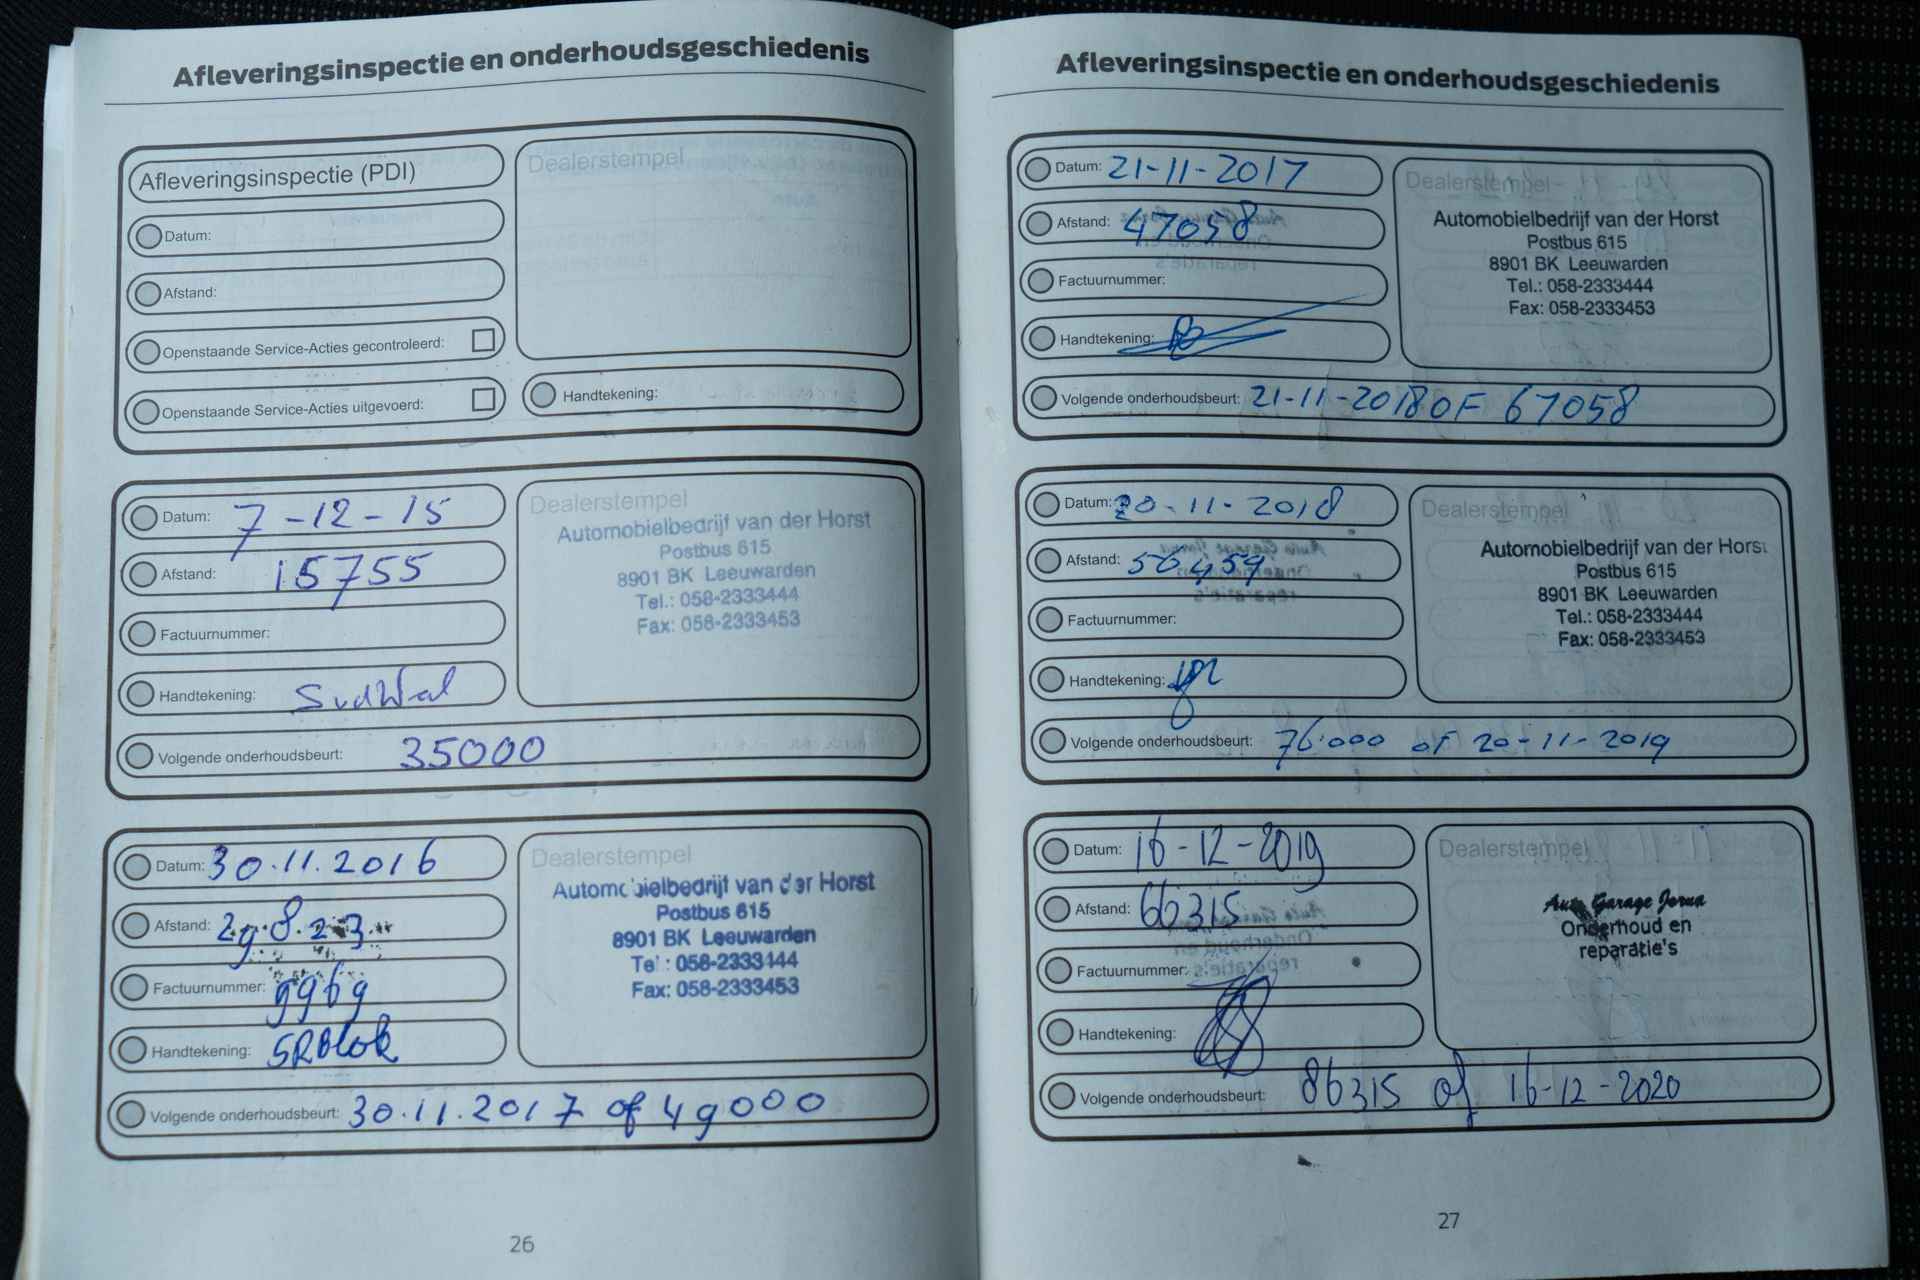 Afleveringsinspectie en onderhoudsgeschiedenis
Afleveringsinspectie (PDI)
Datum:
Afstand:
Openstaande Service-Acties gecontroleerd:
Openstaande Service-Acties uitgevoerd:
Dealerstempel
Handtekening:
Datum: 7-12-15
Afstand: 15755
Factuurnummer:
Handtekening:
Dealerstempel
Automobielbedrijf van der Horst
Postbus 615
8901 BK Leeuwarden
Tel.: 058-2333444
Fax: 058-2333453
Volgende onderhoudsbeurt: 35000
Datum: 30.11.2016
Afstand: 29.823
Factuurnummer: 9969
Handtekening: SRBlok
Dealerstempel
Automobielbedrijf van der Horst
Postbus 615
8901 BK Leeuwarden
Tel.: 058-2333444
Fax: 058-2333453
Volgende onderhoudsbeurt: 30.11.2017 of 49000
26
Afleveringsinspectie en onderhoudsgeschiedenis
Datum: 21-11-2017
Afstand: 47058
Factuurnummer:
Handtekening:
Dealerstempel
Automobielbedrijf van der Horst
Postbus 615
8901 BK Leeuwarden
Tel.: 058-2333444
Fax: 058-2333453
Volgende onderhoudsbeurt: 21-11-2018 OF 67058
Datum: 20-11-2018
Afstand: 56459
Factuurnummer:
Handtekening:
Dealerstempel
Automobielbedrijf van der Horst
Postbus 615
8901 BK Leeuwarden
Tel.: 058-2333444
Fax: 058-2333453
Volgende onderhoudsbeurt: 76.000 of 20-11-2019
Datum: 16-12-2019
Afstand: 66315
Factuurnummer:
Handtekening:
Dealerstempel
Auto Garage Jorna
Onderhoud en
reparatie's
Volgende onderhoudsbeurt: 86315 of 16-12-2020
27